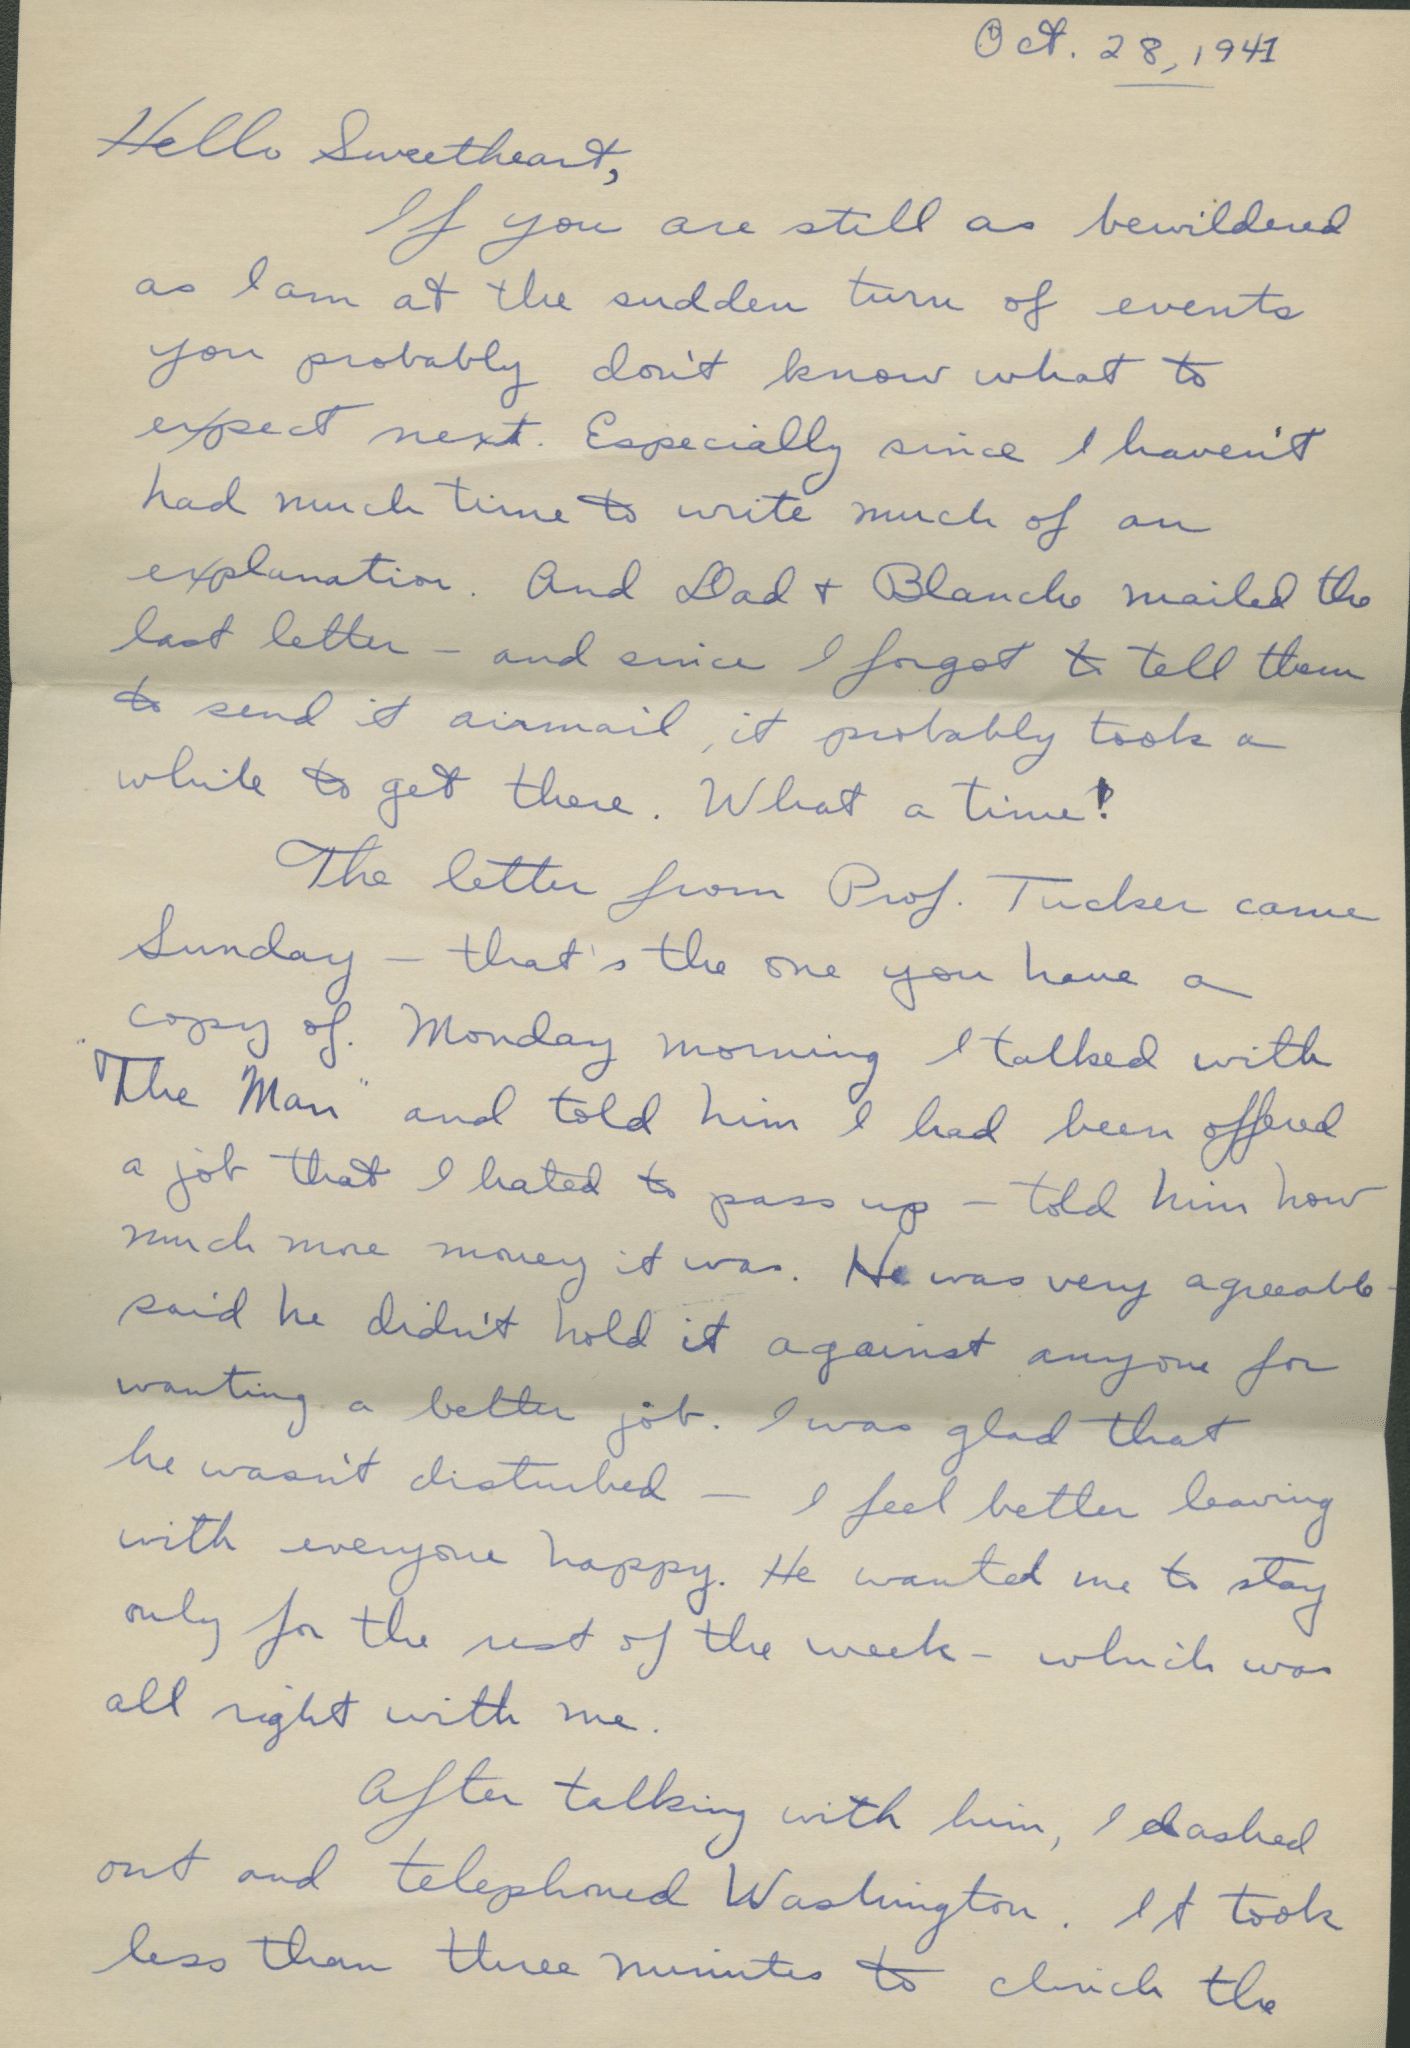 Oct. 28, 1941
Hello Sweetheart,
If you are still as bewildered
as I am at the sudden turn of events
you probably don't know what to
expect next. Especially since I haven't
had much time to write much of an
explanation. And Dad + Blanche mailed the
last letter – and since I forgot to tell them
to send it airmail, it probably took a
while to get there. What a time!
The letter from Prof. Tucker came
Sunday – that's the one you have a
copy of. Monday morning I talked with
"The Man" and told him I had been offered
a job that I hated to pass up – told him how
much more money it was. He was very agreeable –
said he didn't hold it against anyone for
wanting a better job. I was glad that
he wasn't disturbed – I feel better leaving
with everyone happy. He wanted me to stay
only for the rest of the week – which was
all right with me.
After talking with him, I dashed
out and telephoned Washington. It took
less than three minutes to clinch the